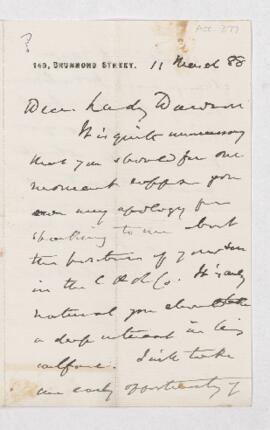 ?
Acc 377
149, DRUMMOND STREET. 11 March 88
Dear Lady Dawson
It is quite unnecessary
that you should for one
moment suppose you
owe any apology for
speaking to me about
the position of your son
in the C & Co. It is only
natural you should take
a deep interest in his
welfare. I will take
an early opportunity of